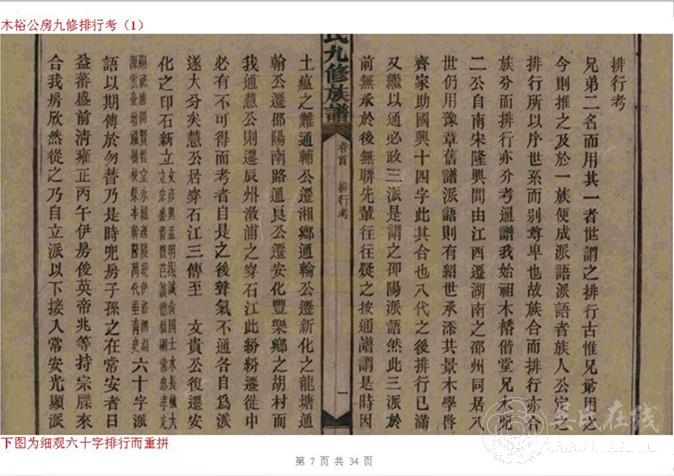 木裕公房九修排行考（1）
排行考
兄弟二名而用其一者世謂之排行古惟兄弟用之
今則推之及於一族便成派語派語者族人公定之
排行所以序世系而别尊卑也故族合而排行亦合
族分而排行亦分考通譜我始祖木偕堂兄木兜
二公自南宋隆興間由江西遷湖南之邵州同居八
世仍用豫章舊譜派語則有紹世承添共景木學啓
齊家助國興十四字此其合也八代之後排行已滿
又繼以通必政三派是謂之邵陽派語然此三派於
前無承於後無聯先輩往往疑之按通譜謂是時因
氏九修族譜
卷首
排行考
一
土瘟之難通輔公遷湘鄉通輪公遷新化之龍塘通
翰公遷邵陽南路通良公遷安化豐樂鄉之胡村而
我通慧公則遷辰州漵浦之穿石江此紛紛遷徙中
必有不可得而考者自是之後聲氣不通各自爲派
遂大分矣慧公居穿石江三傳至 文貴公復遷安
化之印石新立 六十字派
語以期傳於勿替乃是時兜房子孫之在常安者日
益蕃盛前清雍正丙午伊房俊英帝兆等持宗牒來
合我房欣然從之乃自立派以下接入常安光顯派
下图为细观六十字排行而重拼
第 7 页 共 34 页